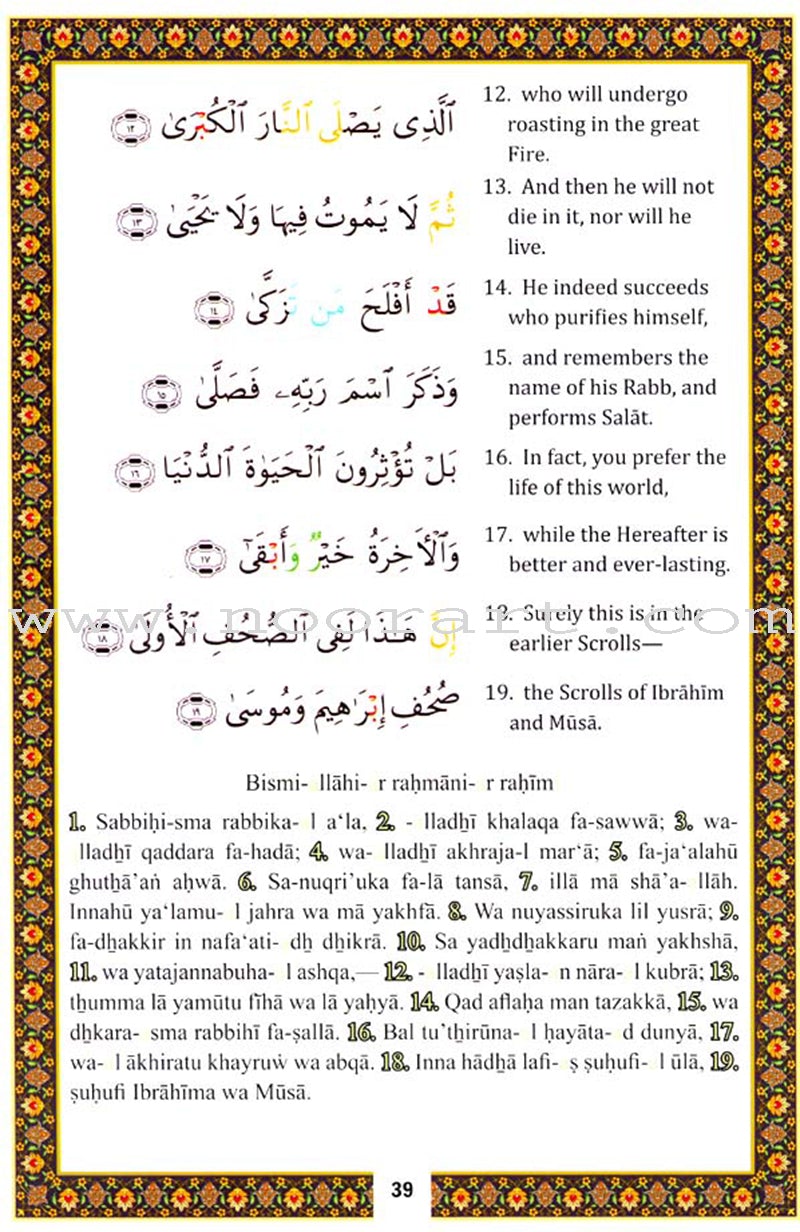 ٱلَّذِى يَصْلَى ٱلنَّارَ ٱلْكُبْرَىٰ ١٢
12. who will undergo
roasting in the great
Fire.
ثُمَّ لَا يَمُوتُ فِيهَا وَلَا يَحْيَىٰ ١٣
13. And then he will not
die in it, nor will he
live.
قَدْ أَفْلَحَ مَن تَزَكَّىٰ ١٤
14. He indeed succeeds
who purifies himself,
وَذَكَرَ ٱسْمَ رَبِّهِۦ فَصَلَّىٰ ١٥
15. and remembers the
name of his Rabb, and
performs Salāt.
بَلْ تُؤْثِرُونَ ٱلْحَيَوٰةَ ٱلدُّنْيَا ١٦
16. In fact, you prefer the
life of this world,
وَٱلْأَخِرَةُ خَيْرٌ وَأَبْقَىٰٓ ١٧
17. while the Hereafter is
better and ever-lasting.
إِنَّ هَـٰذَا لَفِى ٱلصُّحُفِ ٱلْأُولَىٰ ١٨
18. Surely this is in the
earlier Scrolls—
www.noorart.com
صُحُفِ إِبْرَٰهِيمَ وَمُوسَىٰ ١٩
19. the Scrolls of Ibrāhīm
and Mūsā.
Bismi- llāhi- r raḥmāni- r raḥīm
1. Sabbiḥi-sma rabbika- l a‘la, 2. - lladẖī khalaqa fa-sawwā; 3. wa-
lladẖī qaddara fa-hadā; 4. wa- lladẖī akhraja-l mar‘ā; 5. fa-ja‘alahū
ghutẖā’aṅ aḥwā. 6. Sa-nuqri’uka fa-lā tansā, 7. illā mā shā’a- llāh.
Innahū ya‘lamu- l jahra wa mā yakhfā. 8. Wa nuyassiruka lil yusrā; 9.
fa-dẖakkir in nafa‘ati- dẖ dẖikrā. 10. Sa yadẖdẖakkaru maṅ yakhshā,
11. wa yatajannabuha- l ashqa,— 12. - lladẖī yaṣla- n nāra- l kubrā; 13.
tẖumma lā yamūtu fīhā wa lā yaḥyā. 14. Qad aflaḥa man tazakkā, 15. wa
dẖkara- sma rabbihī fa-ṣallā. 16. Bal tu’tẖirūna- l ḥayāta- d dunyā, 17.
wa- l ākhiratu khayruẇ wa abqā. 18. Inna hādẖā lafi- ṣ ṣuḥufi- l ūlā, 19.
ṣuḥufi Ibrāhīma wa Mūsā.
39